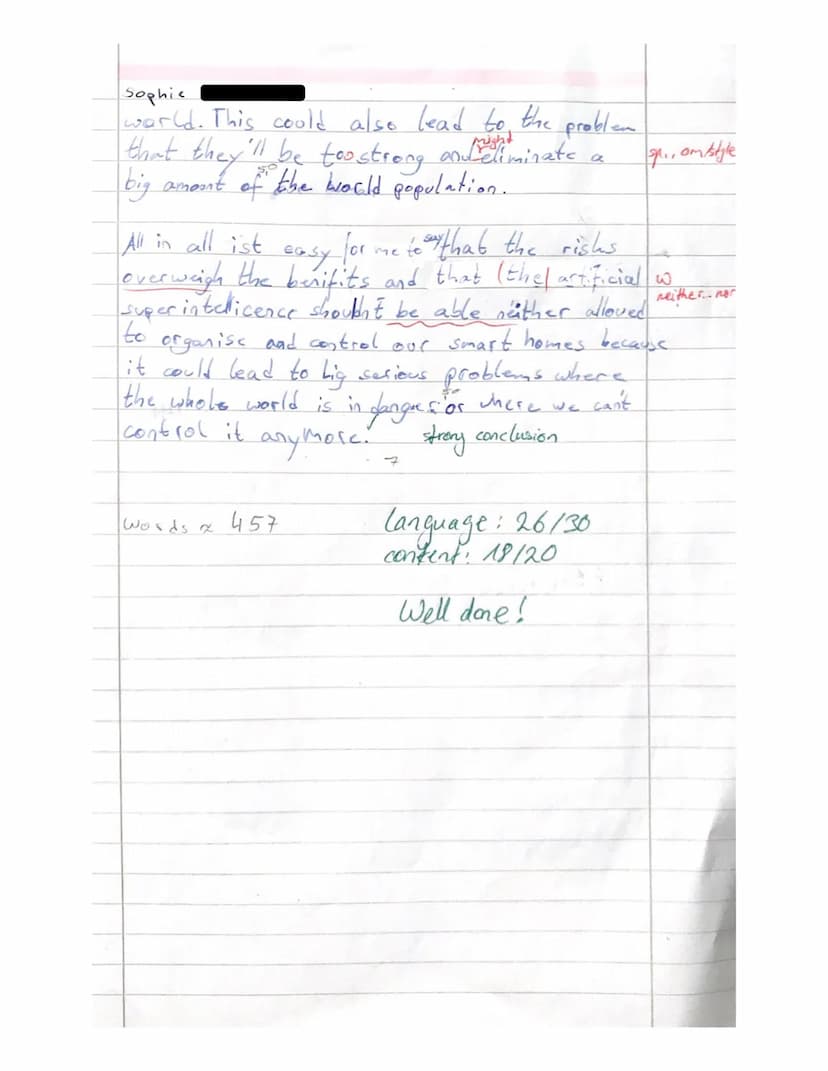 Sophie
world. This could also lead to the problem
that they'll be too strong and might eliminate a sp., om/style
big amount of the world population.
All in all ist easy for me to say that the risks
overweigh the benifits and that (the) artificial w
superintellicence shouldn't be able neither allowed neither..nor
to organise and control our smart homes because
it could lead to big serious problems where
the whole world is in danger or where we can't
control it anymore. strong conclusion
Words ≈ 457 Language: 26/30
content: 18/20
Well done!